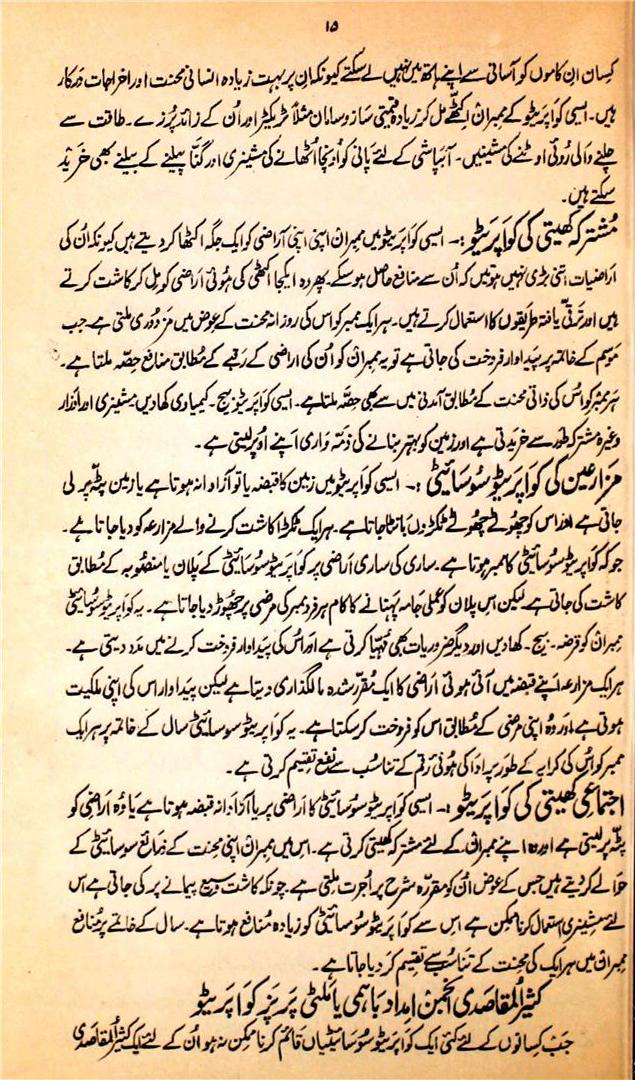 ۱۵
کسان ان کاموں کو آسانی سے اپنے ہاتھ میں نہیں لے سکتے کیونکہ ان پر بہت زیادہ انسانی محنت اور اخراجات درکار
ہیں۔ ایسی کواپریٹو کے ممبران اکٹھے مل کر زیادہ قیمتی سازوسامان مثلاً ٹریکٹر اور اُن کے زائد پُرزے۔ طاقت سے
چلنے والی رُوئی اوٹنے کی مشینیں۔ آبپاشی کے لئے پانی کو اُونچا اُٹھانے کی مشینری اور گنّا پیلنے کے بیلنے بھی خرید
سکتے ہیں۔
مُشترکہ کھیتی کی کواپریٹو :۔ ایسی کواپریٹو میں ممبران اپنی اپنی آراضی کو ایک جگہ اکٹھا کر دیتے ہیں کیونکہ اُن کی
اراضیات اتنی بڑی نہیں ہوتیں کہ اُن سے منافع حاصل ہو سکے۔ پھر وہ ایکجا اکٹھی کی ہُوئی اَراضی کو مِل کر کاشت کرتے
ہیں اور ترقی یافتہ طریقوں کا استعمال کرتے ہیں۔ ہر ایک ممبر کو اس کی روزانہ محنت کے عوض میں مزدوری ملتی ہے۔ جب
موسم کے خاتمہ پر پیداوار فروخت کی جاتی ہے تو یہ ممبران کو اُن کی اراضی کے رقبے کے مُطابق منافع حصّہ ملتا ہے۔
ہر ممبر کو اُس کی ذاتی محنت کے مُطابق آمدنی میں سے بھی حصّہ ملتا ہے۔ ایسی کواپریٹو بیج۔ کیمیاوی کھادیں مشینری اور اَوزار
وغیرہ مشترکہ طور سے خریدتی ہے اور زمین کو بہتر بنانے کی ذمّہ واری اَپنے اُوپر لیتی ہے۔
مزارعین کی کواپریٹو سُوسائیٹی :۔ ایسی کواپریٹو میں زمین کا قبضہ یا تو آزادانہ ہوتا ہے یا زمین پٹّہ پر لی
جاتی ہے اور اس کو چھوٹے چھوٹے ٹکڑوں بانٹا جاتا ہے۔ ہر ایک ٹکڑا کاشت کرنے والے مزارعہ کو دیا جاتا ہے۔
جو کہ کواپریٹو سُوسائیٹی کا ممبر ہوتا ہے۔ ساری کی ساری اَراضی پر کواپریٹو سُوسائیٹی کے پَلان یا منصُوبہ کے مُطابق
کاشت کی جاتی ہے لیکن اِس پلان کو عملی جامہ پہنانے کا کام ہر فرد ممبر کی مرضی پر چھوڑ دیا جاتا ہے۔ یہ کواپریٹو سُوسائیٹی
ممبران کو قرضہ۔ بیج۔ کھادیں اور دیگر ضروریات بھی مُہیّا کرتی ہے اور اُس کی پیداوار فروخت کرنے میں مدد دیتی ہے۔
ہر ایک مزارعہ اَپنے قبضہ میں آئی ہوئی اَراضی کا ایک مُقرّر شدہ مالگذاری دیتا ہے لیکن پیداوار اس کی اپنی ملکیت
ہوتی ہے اور وُہ اپنی مرضی کے مُطابق اس کو فروخت کرسکتا ہے۔ یہ کواپریٹو سوسائیٹی سال کے خاتمہ پر ہر ایک
ممبر کو اُس کی کرایہ کے طور پر ادا کی ہُوئی رقم کے تناسُب سے نفع تقسیم کرتی ہے۔
اجتماعی کھیتی کی کواپریٹو :۔ ایسی کواپریٹو سُوسائیٹی کا اَراضی پر یا آزادانہ قبضہ ہوتا ہے یا وُہ اَراضی کو
پٹّہ پر لیتی ہے اور وہ اپنے ممبران کے لئے مشترکہ کھیتی کرتی ہے۔ اس میں ممبران اپنی محنت کے ذرائع سوسائیٹی کے
حوالے کر دیتے ہیں جس کے عوض اُن کو مقررّہ شرح پر اُجرت ملتی ہے۔ چونکہ کاشت وسیع پیمانے پر کی جاتی ہے اس
لئے مشینری استعمال کرنا ممکن ہے اس سے کواپریٹو سُوسائیٹی کو زیادہ مُنافع ہوتا ہے۔ سال کے خاتمے پر مُنافع
ممبران میں ہر ایک کی محنت کے تناسُب سے تقسیم کر دیا جاتا ہے۔
کثیرُ المقاصدی انجمن امداد باہمی یا مَلٹی پَرپز کواپریٹو
جَب کسانوں کے لئے کئی ایک کواپریٹو سُوسائیٹیاں قائم کرنا ممکن نہ ہو اُن کے لئے ایک کثیرُ المقاصدی